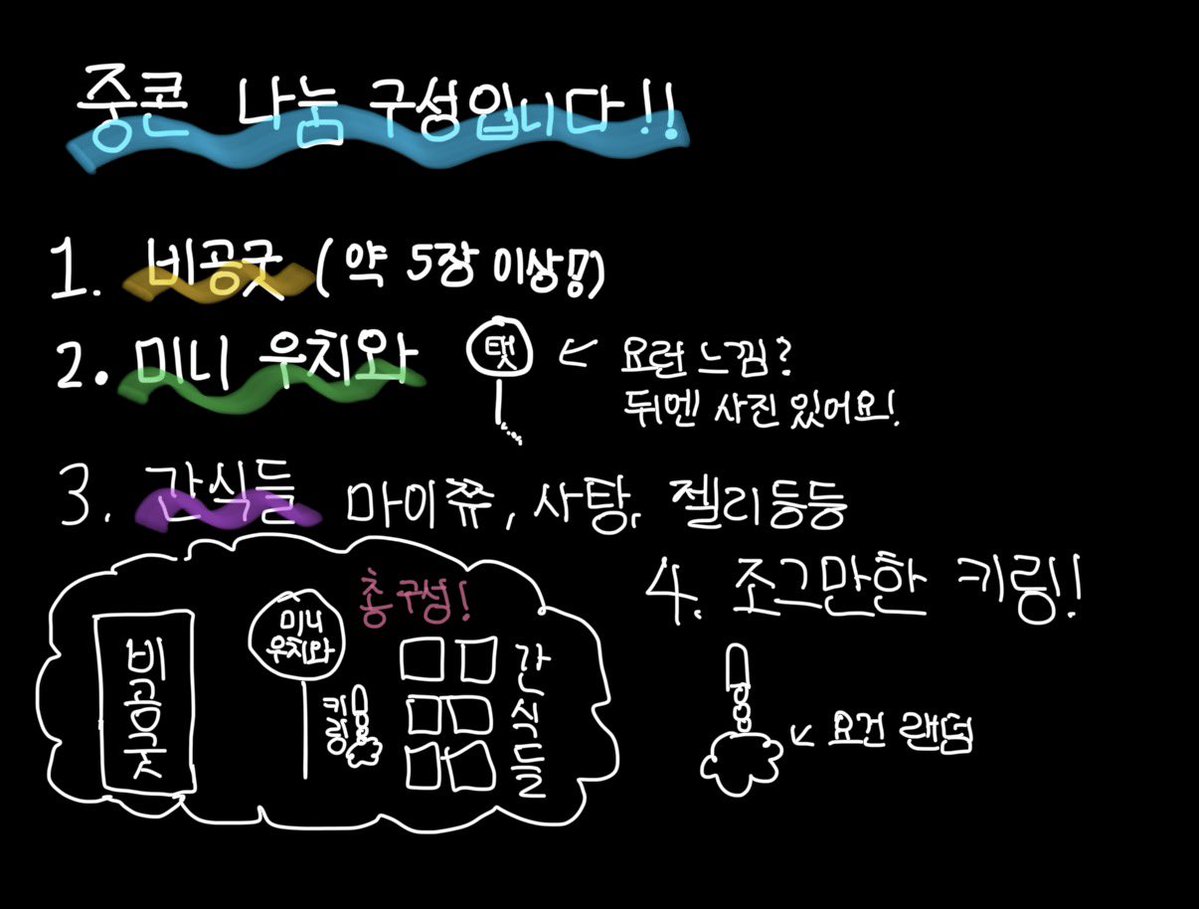 중콘 나눔 구성입니다!!
1. 비공굿 (약 5장 이상!?)
2. 미니 우치와
탯
← 요런 느낌?
뒤엔 사진 있어요!
3. 간식들 마이쮸, 사탕, 젤리등등
4. 조그만한 키링!
← 요건 랜덤
총구성!
비공굿
미니
우치와
키링
간식들